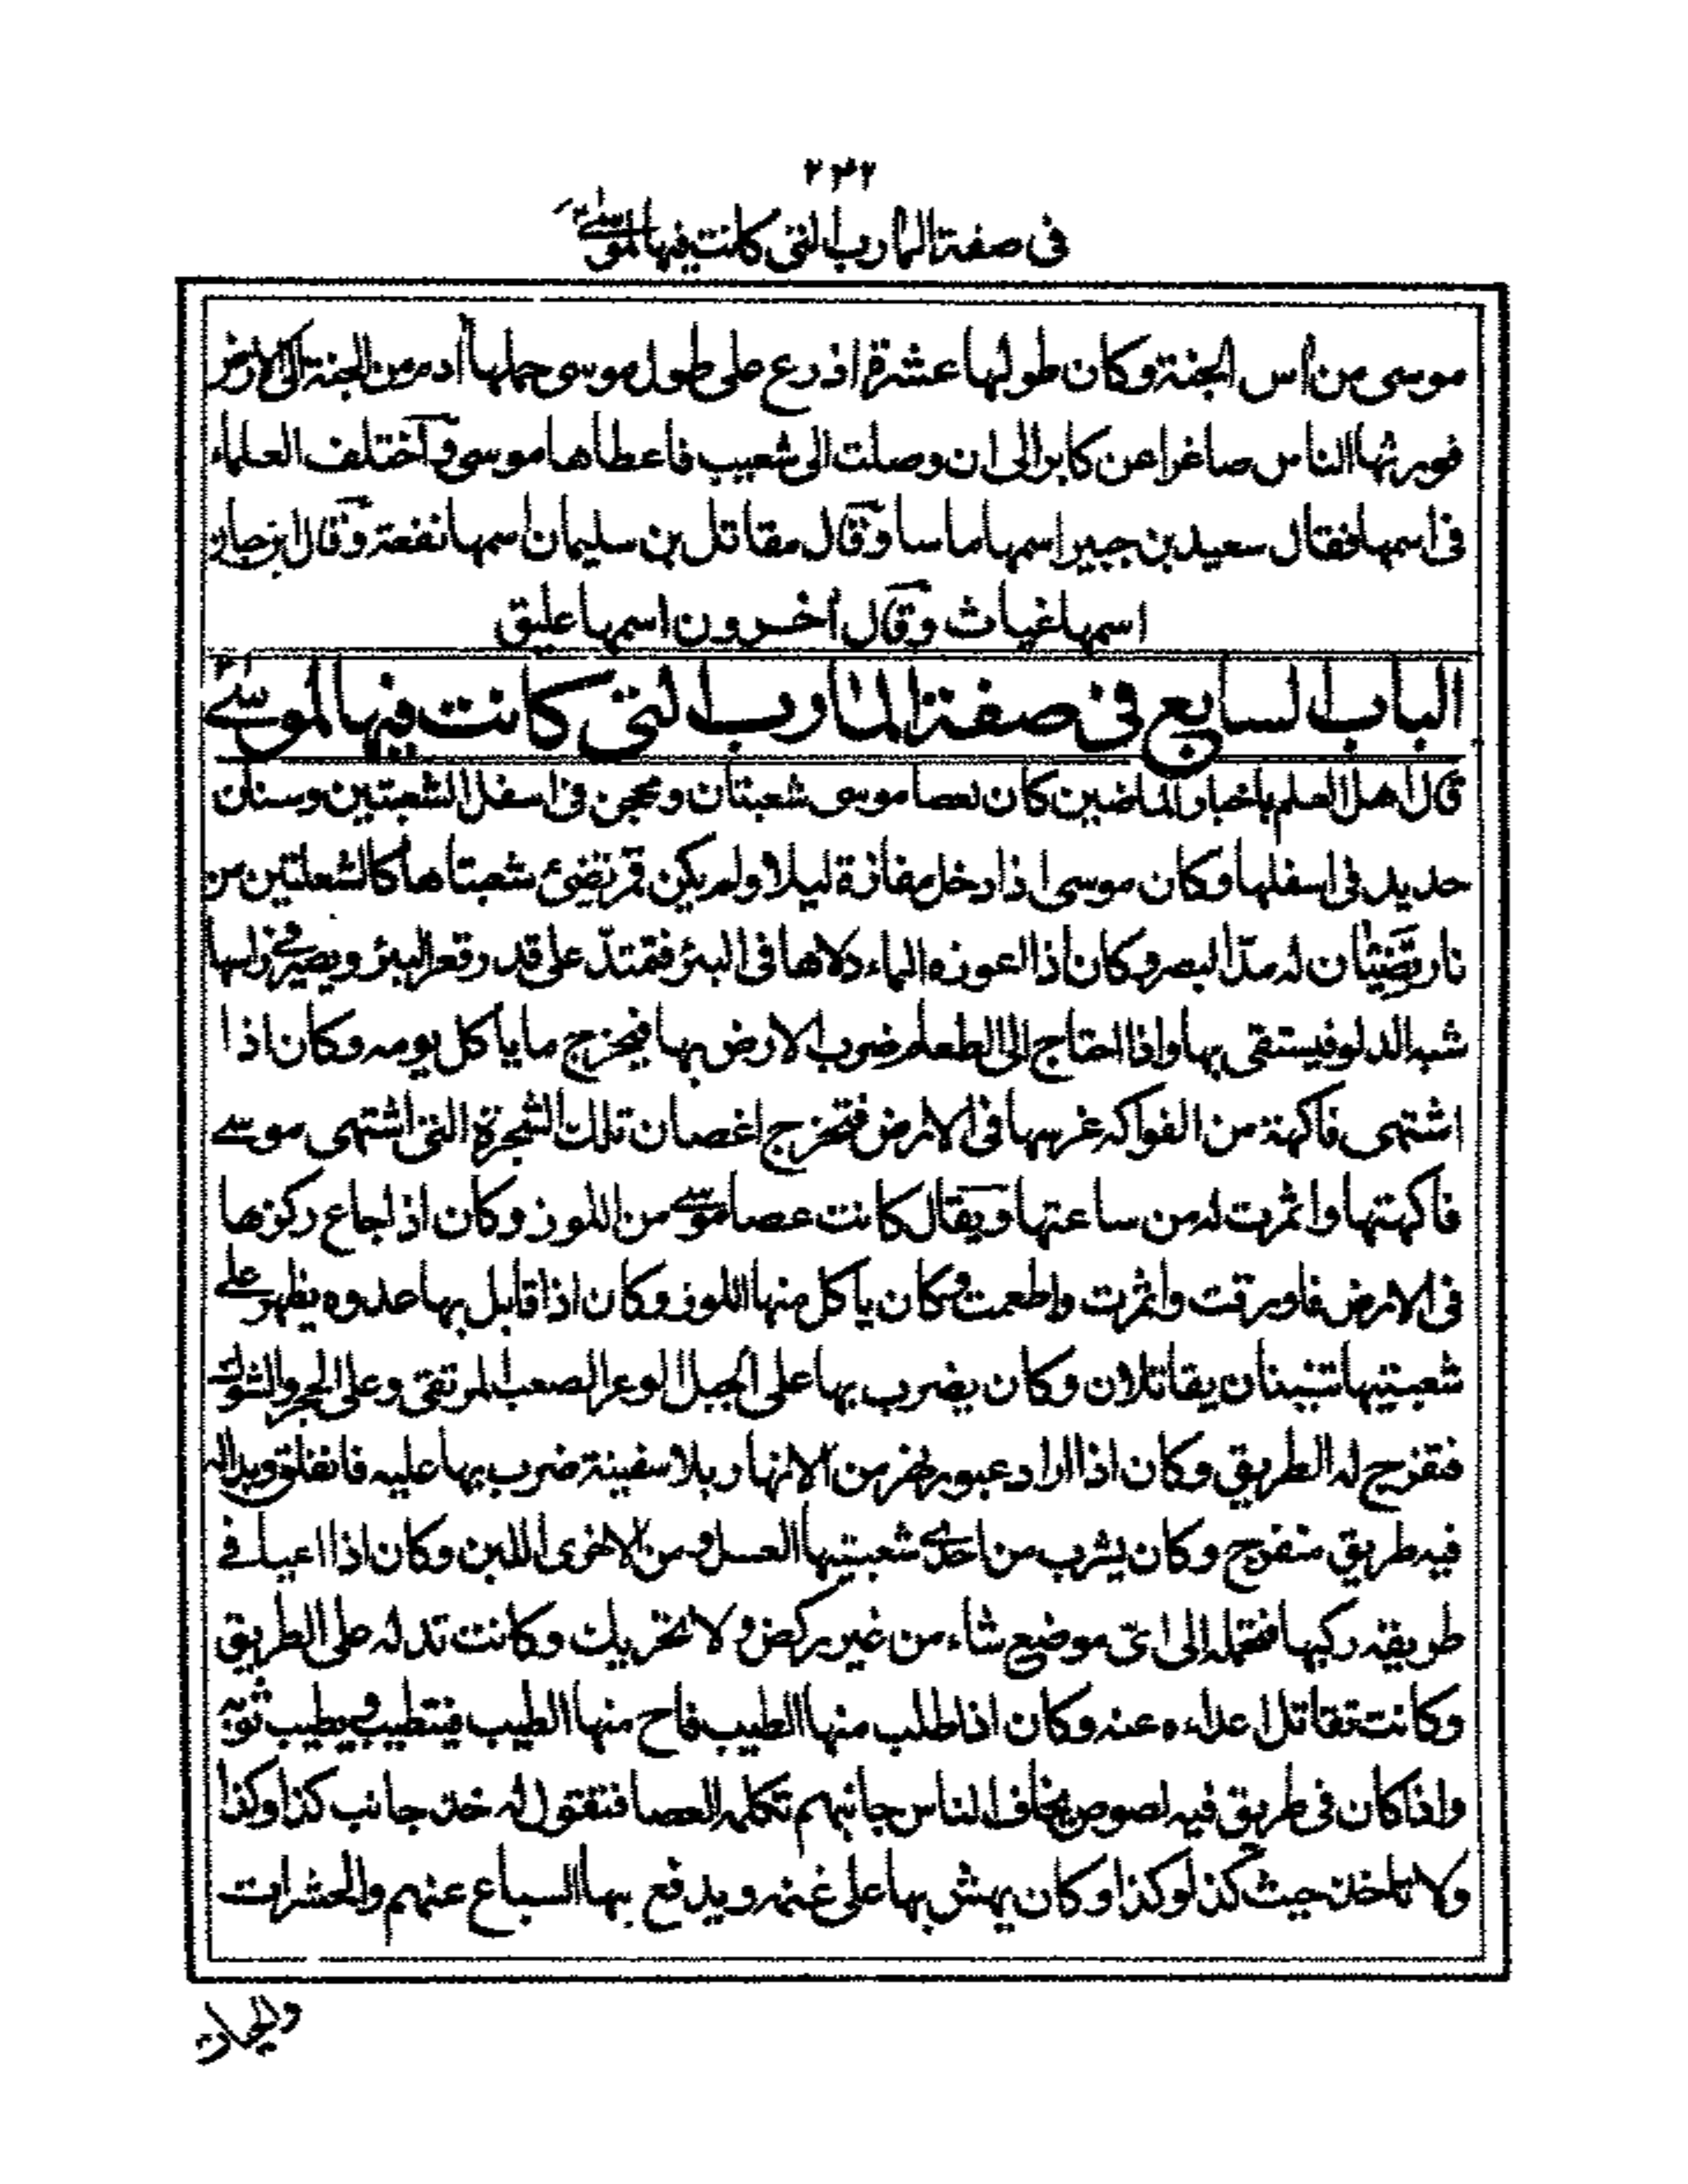 ٢٣٢
فى صفة المآرب التى كانت فيها لموسى
موسى من آس الجنة وكان طولها عشرة اذرع على طول موسى حملها آدم من الجنة الى الارض
فورثها الناس صاغرا عن كابر الى ان وصلت الى شعيب فأعطاها موسى وآختلف العلماء
فى اسمها فقال سعيد بن جبير اسمها ماسا وقال مقاتل بن سليمان اسمها نفعة وقال ابن
اسمها غياث وقال آخرون اسمها عليق
الباب السابع فى صفة المآرب التى كانت فيها لموسى
قال اهل العلم باخبار الماضين كان لعصا موسى شعبتان ومحجن فى اسفل الشعبتين وسنان
حديد فى اسفلها وكان موسى اذا دخل مفازة ليلا ولم يكن قمر تضئ شعبتاها كالشعلتين من
نار تضيئان له مدّ البصر وكان اذا اعوزه الماء دلاها فى البئر فتمتدّ على قدر قعر البئر ويصير فى راسها
شبه الدلو فيستقى بها واذا احتاج الى الطعام ضرب الارض بها فيخرج ما ياكل يومه وكان اذا
اشتهى فاكهة من الفواكه غرسها فى الارض فتخرج اغصان تلك الشجرة التى اشتهى موسى
فاكهتها واثمرت له من ساعتها ويقال كانت عصا موسى من اللوز وكان اذا جاع ركزها
فى الارض فاورقت واثمرت واطعمت وكان ياكل منها اللوز وكان اذا قابل بها عدوه يظهر على
شعبتيها تنينان يقاتلان وكان يضرب بها على الجبل الوعر الصعب المرتقى وعلى الحجر والشوك
فتفرج له الطريق وكان اذا اراد عبور نهر من الانهار بلا سفينة ضرب بها عليه فانفلق وبدا له
فيه طريق منفرج وكان يشرب من احدى شعبتيها العسل ومن الاخرى اللبن وكان اذا اعيا فى
طريقه ركبها فتحمله الى اىّ موضع شاء من غير ركض ولا تحريك وكانت تدله على الطريق
وكانت تقاتل اعداءه عنه وكان اذا طلب منها الطيب فاح منها الطيب فيتطيب ويطيب ثوبه
واذا كان فى طريق فيه لصوص يخاف الناس جانبهم تكلمه العصا فتقول له خذ جانب كذا وكذا
ولا تاخذ حيث كذا وكذا وكان يهش بها على غنمه ويدفع بها السباع عنهم والحشرات
والحيات